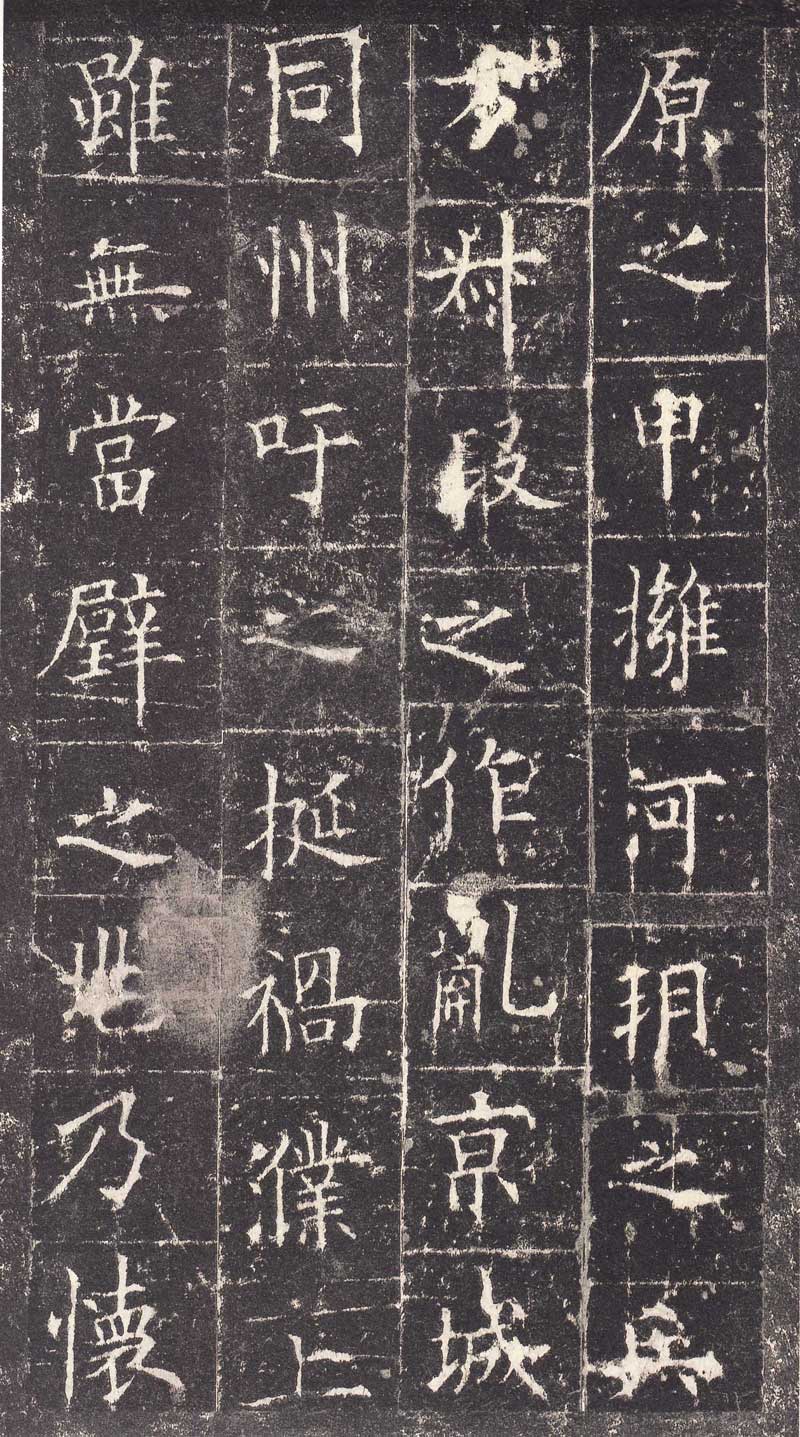 原之甲擁河朔之兵
方叔段之作亂京城
同州吁之挻禍濮上
雖無當璧之兆乃懷